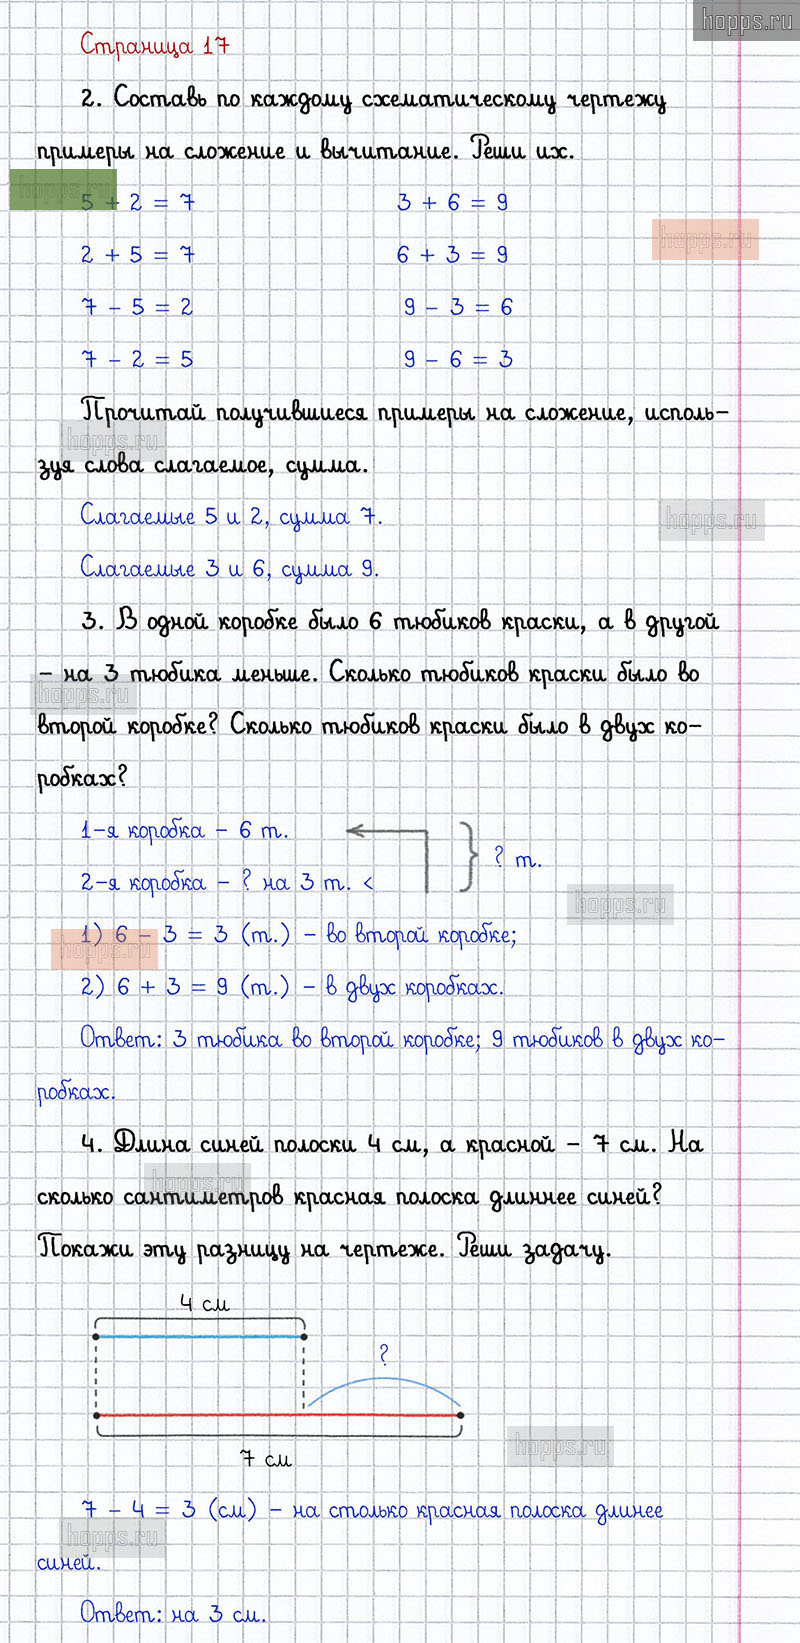 hopps.ru
Страница 17
2. Составь по каждому схематическому чертежу
примеры на сложение и вычитание. Реши их.
hopps.ru
5 + 2 = 7 3 + 6 = 9
hopps.ru
2 + 5 = 7 6 + 3 = 9
7 - 5 = 2 9 - 3 = 6
7 - 2 = 5 9 - 6 = 3
Прочитай получившиеся примеры на сложение, исполь-
hopps.ru
зуя слова слагаемое, сумма.
Слагаемые 5 и 2, сумма 7.
hopps.ru
Слагаемые 3 и 6, сумма 9.
3. В одной коробке было 6 тюбиков краски, а в другой
- на 3 тюбика меньше. Сколько тюбиков краски было во
hopps.ru
второй коробке? Сколько тюбиков краски было в двух ко-
робках?
1-я коробка - 6 т.
? т.
2-я коробка - ? на 3 т. <
hopps.ru
1) 6 - 3 = 3 (т.) - во второй коробке;
hopps.ru
2) 6 + 3 = 9 (т.) - в двух коробках.
Ответ: 3 тюбика во второй коробке; 9 тюбиков в двух ко-
робках.
4. Длина синей полоски 4 см, а красной - 7 см. На
hopps.ru
сколько сантиметров красная полоска длиннее синей?
Покажи эту разницу на чертеже. Реши задачу.
4 см
?
7 см
hopps.ru
7 - 4 = 3 (см) - на столько красная полоска длинее
hopps.ru
синей.
Ответ: на 3 см.